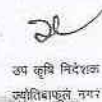 उप कृषि निदेशक
ज्योतिबाफुले नगर